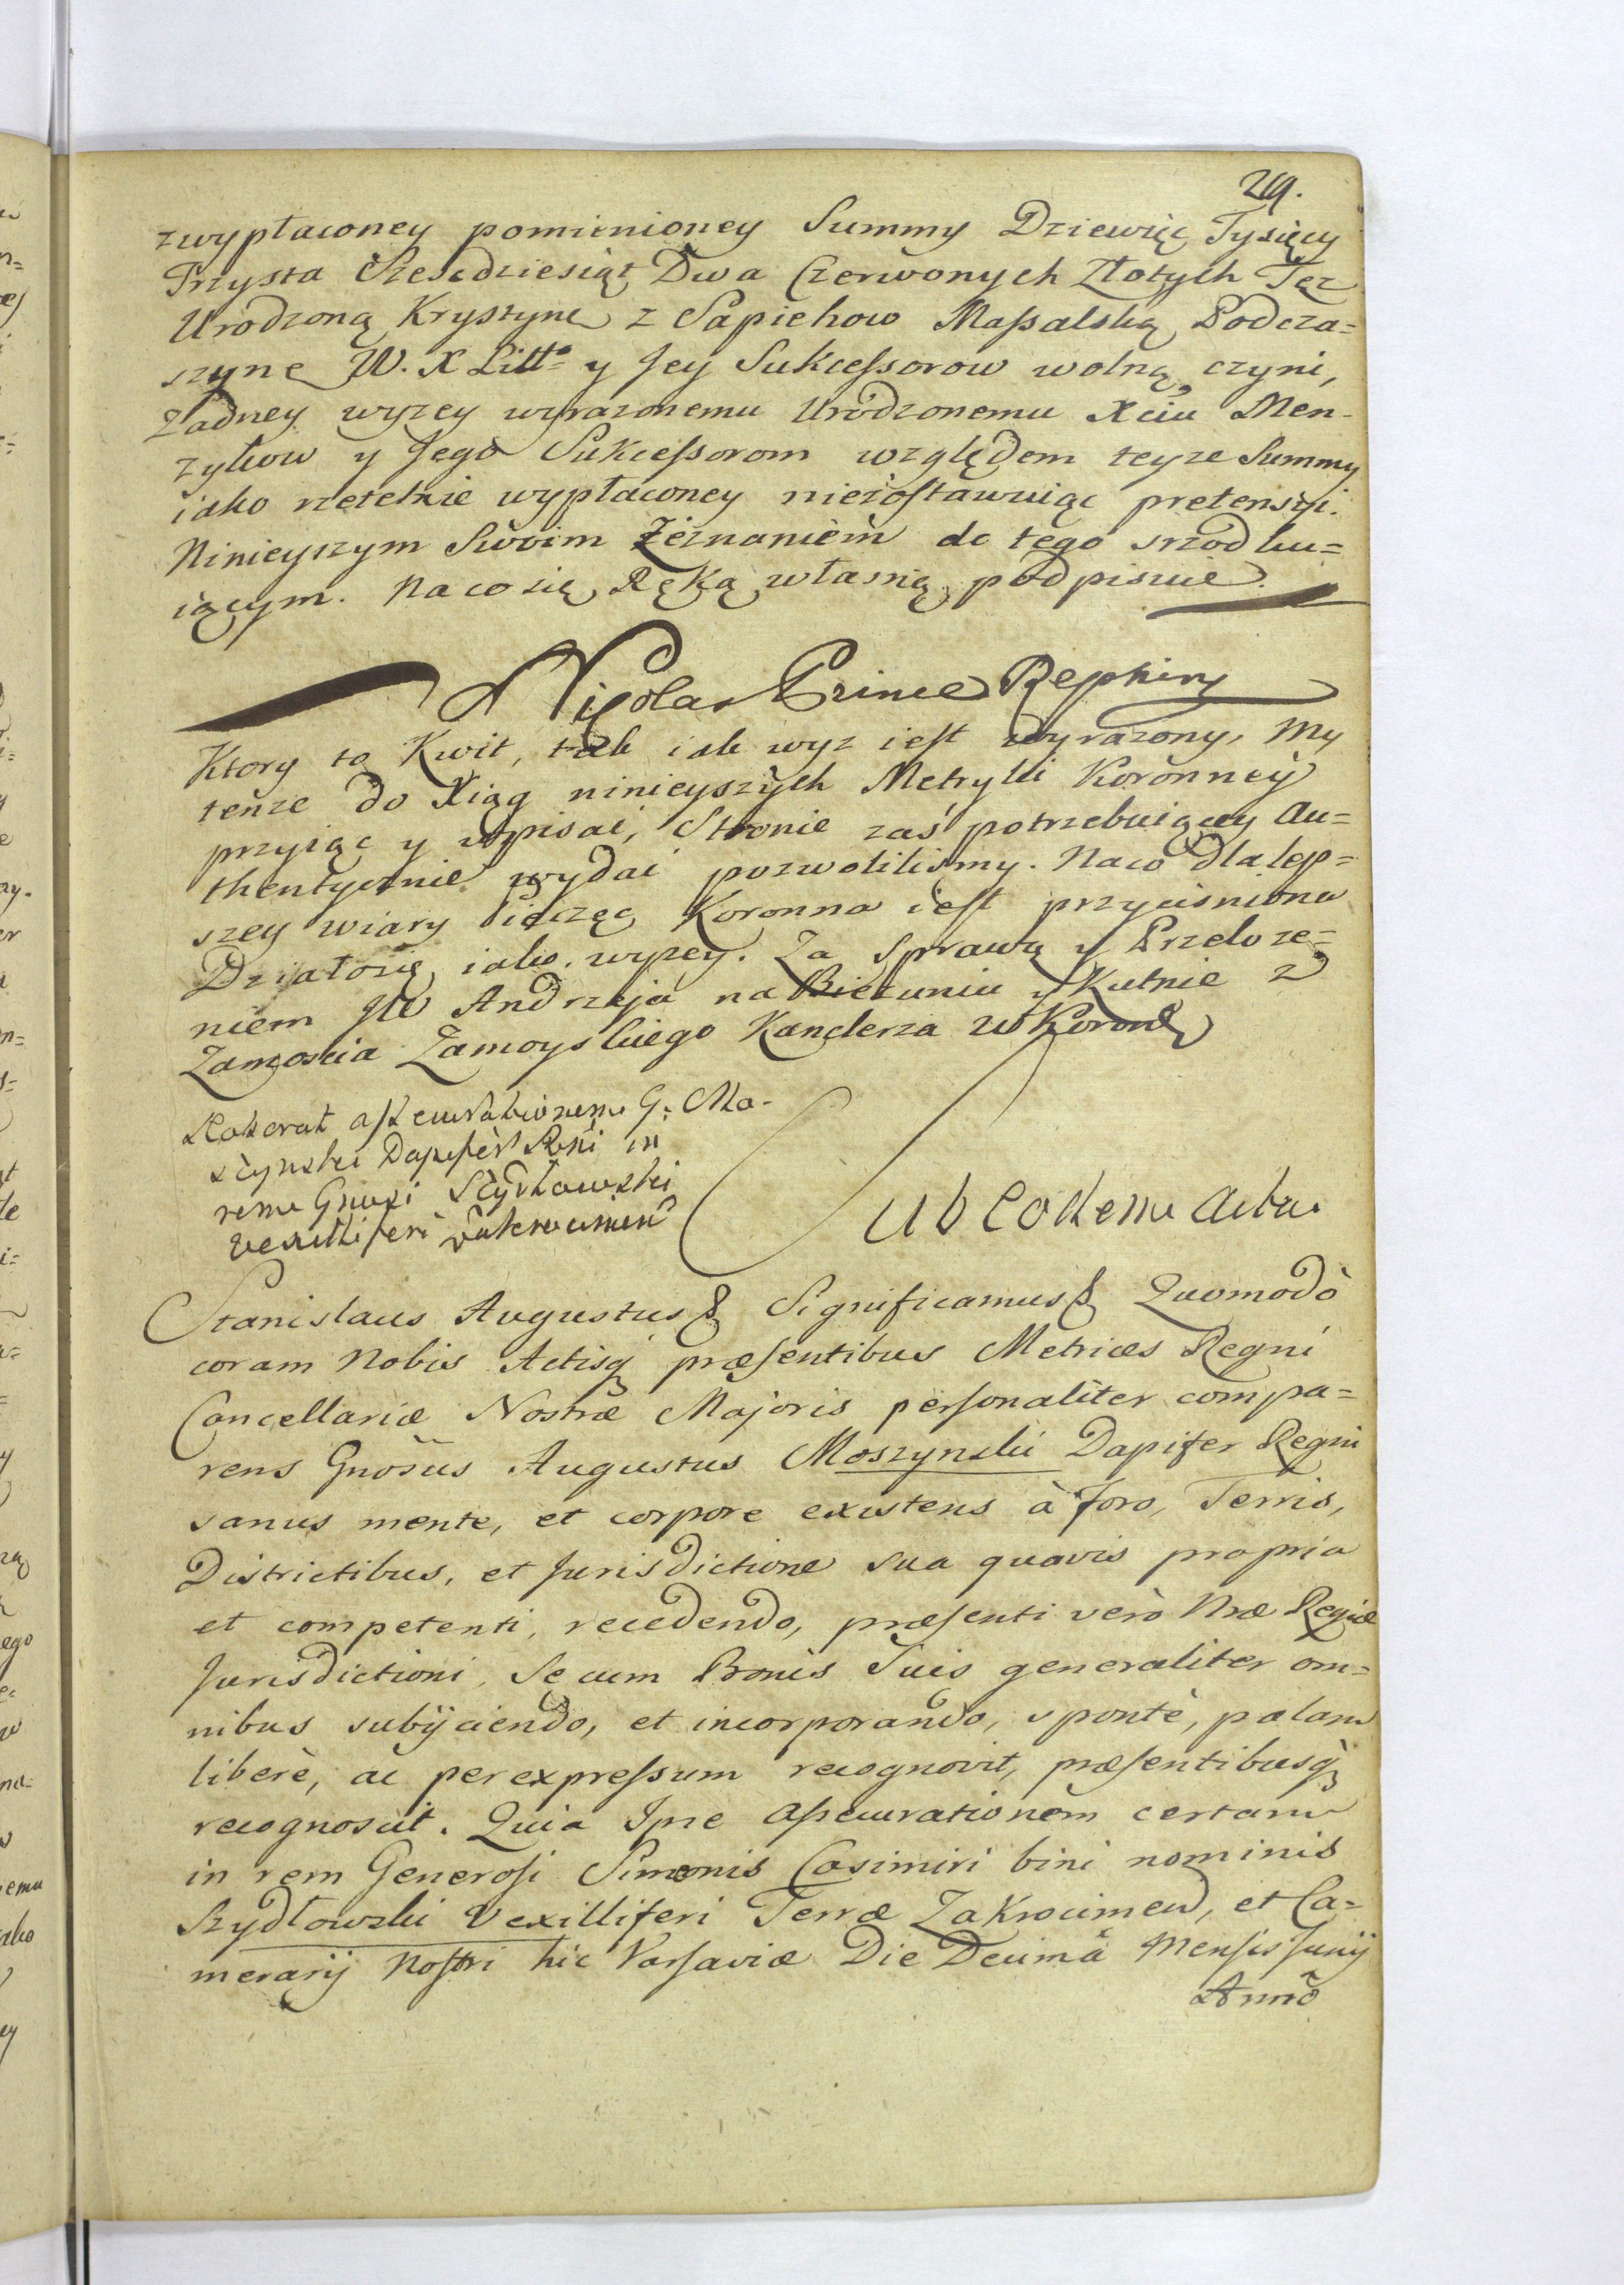 29.
zwypłaconey pomienioney Summy Dziewięć Tysięcy
Trzysta Szescdziesiąt Dwa Czerwonych Złotych Tęz
Urodzoną Krystynę z Sapiehow Maſsalską Podcza=
szynę W. X Litt: y Jey Sukceſsorow wolną czyni,
Zadney wyzey wyrazonemu Urodzonemu Xciu Men-
zykow y Jego Sukceſsorom względem teyze Summy
iako rzetelnie wypłaconey niezoſtawuiąc pretensyi.
Ninieyszym Swoim Zeznaniem do tego srzodku=
iącym. Na co się Ręką własną podpisuie.
Nicolas Prince Repnin
Ktory to Kwit, tak iak wyz ieſt wyrazony, My
tenze do Xiąg ninieyszych Metryki Koronney
przyiąc y wpisać, Stronie zaś potrzebuiącey Au=
thentycznie wydać pozwoliliśmy. Na co Dla lep=
szey wiary Pieczęć Koronna ieſt przycisniona
Działo się iako wyzey. Za Sprawą y Przełoze=
niem JW Andrzeja na Biezuniu y Kutnie z
Zamoscia Zamoyskiego Kanclerza W Korone
G: Mo-
szynski Dapifer Rni in
rem Gnosi Szydłowski
Vexilliferi Zakrocimen
Sub eodem Actu
Stanislaus Augustus & Significamus & Quomodò
coram Nobis Actisq̃ præſentibus Metrices Regni
Cancellariæ Nostræ Majoris perſonaliter compa=
rens Gnosus Augustus Moszynski Dapifer Regni
sanus mente, et corpore existens à Foro, Terris,
Districtibus, et Jurisdictione sua quavis propria
et competenti, recedendo, præſenti verò Nræ Regiæ
Jurisdictioni, Se cum Bonis Suis generaliter om=
nibus subijciendo, et incorporando, spontè, palam
liberè, ac per expreſsum recognovit, præſentibusq̃
recognoscit. Quia Ipse Aſsecurationem certam
in rem Generoſi Simonis Casimiri bini nominis
Szydłowski Vexilliferi Terræ Zakrocimen, et Ca=
merarij Noſtri hic Varſaviæ Die Decimâ Menſis Junij
Annô